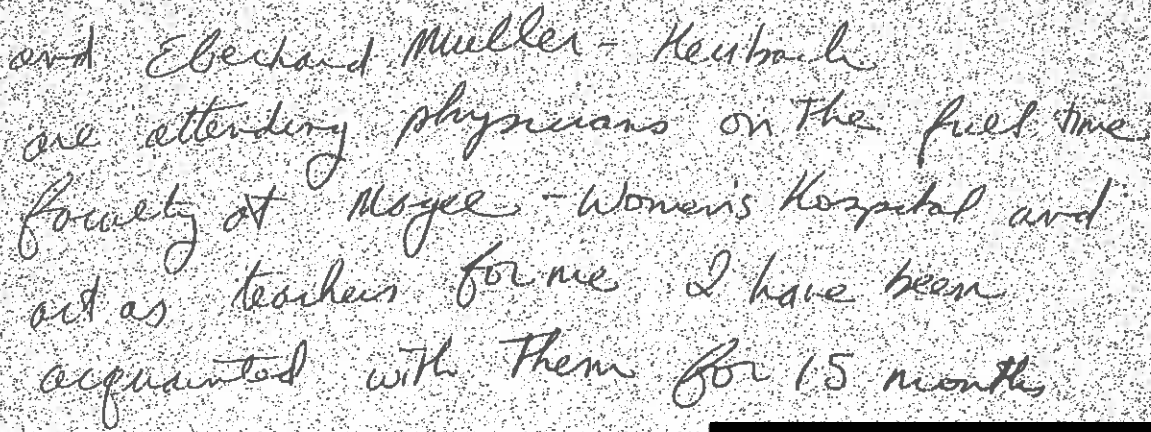 and Eberhard Mueller - Heubach
are attending physicians on the full time
faculty at Magee - Women's Hospital and
act as teachers for me I have been
acquainted with them for 15 months